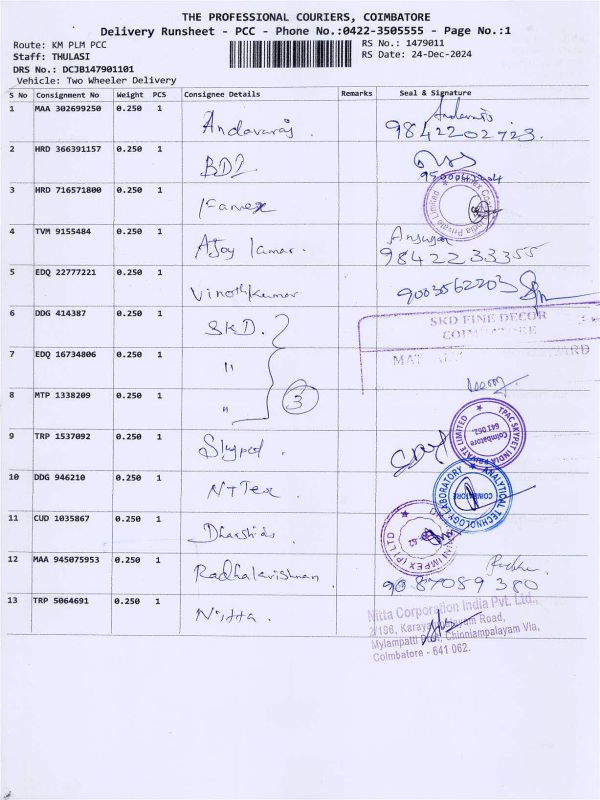 THE PROFESSIONAL COURIERS, COIMBATORE
Delivery Runsheet - PCC - Phone No.:0422-3505555 - Page No.:1
Route: KM PLM PCC RS No.: 1479011
Staff: THULASI RS Date: 24-Dec-2024
DRS No.: DCJB147901101
Vehicle: Two Wheeler Delivery
S No Consignment No Weight PCS Consignee Details Remarks Seal & Signature
1 MAA 302699250 0.250 1 Andavaraj . 9842202723.
2 HRD 366391157 0.250 1
3 HRD 716571800 0.250 1
4 TVM 9155484 0.250 1 AJoy kumar. 9842233355
5 EDQ 22777221 0.250 1 Vinothkumar 9003562203
6 DDG 414387 0.250 1 SKD. SKD FINE DECOR
COIMBATORE
7 EDQ 16734806 0.250 1 "
8 MTP 1338209 0.250 1 " 3
9 TRP 1537092 0.250 1 Skypet. TPAC SKYPET INDIA PRIVATE LIMITED
Coimbatore
641 062.
10 DDG 946210 0.250 1 NTTex ANALYTICAL TECHNOLOGY LABORATORY
COIMBATORE
11 CUD 1035867 0.250 1 IMPEX (P) LTD
12 MAA 945075953 0.250 1 Radhakrishnan 9087089380
13 TRP 5064691 0.250 1 Nitta. Nitta Corporation India Pvt. Ltd.,
2/196, Road,
Mylampatti Chinniampalayam Via,
Coimbatore - 641 062.